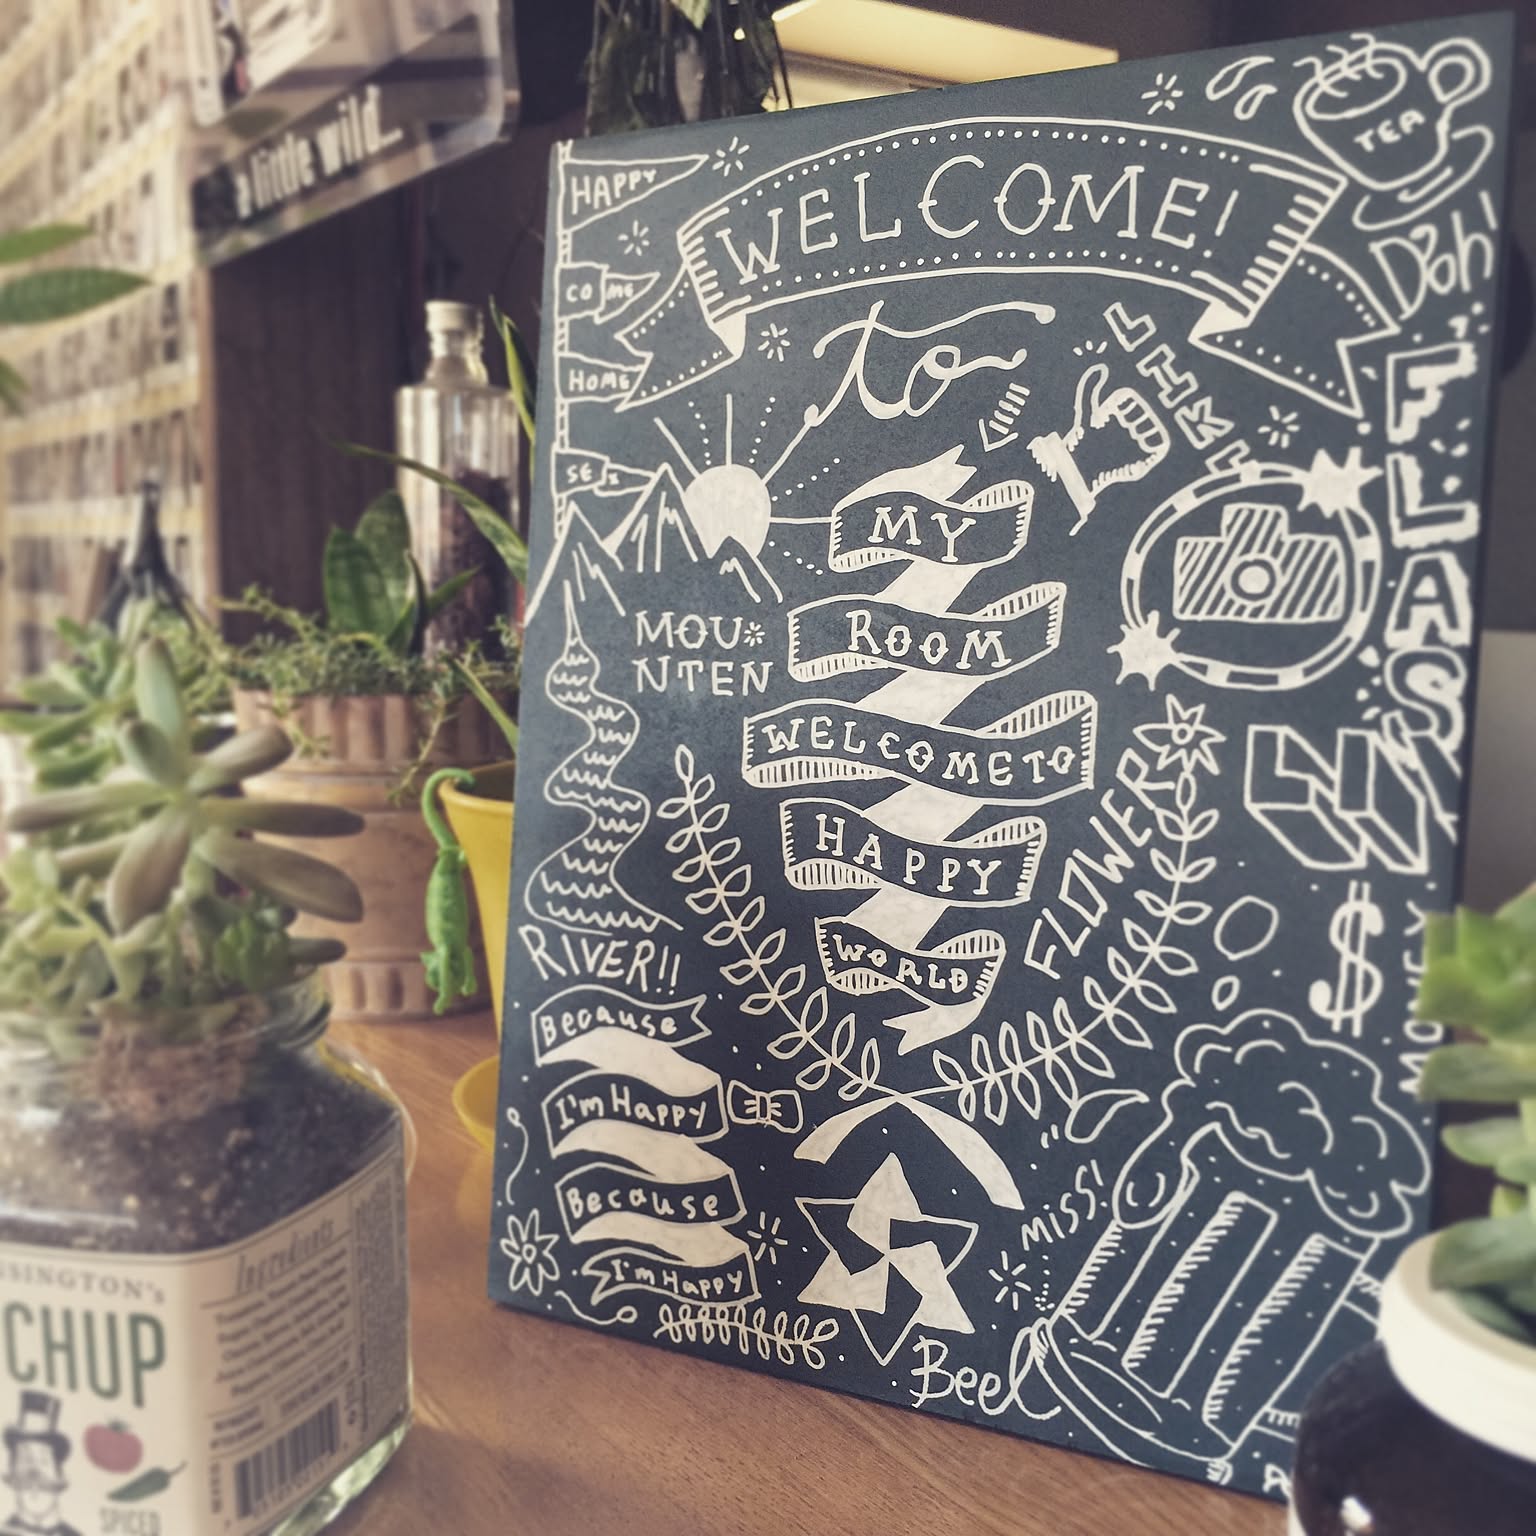 a little wild...
HAPPY
WELCOME!
TEA
COME
HOME
to
Doh!
LIKE
FLASH
MY
ROOM
WELCOME TO
HAPPY
WORLD
MOU
NTEN
FLOWER
RIVER!!
$
MONEY
Because
I'm Happy
Because
I'm Happy
miss!
Beel
Ingredients
CHUP
SPICED